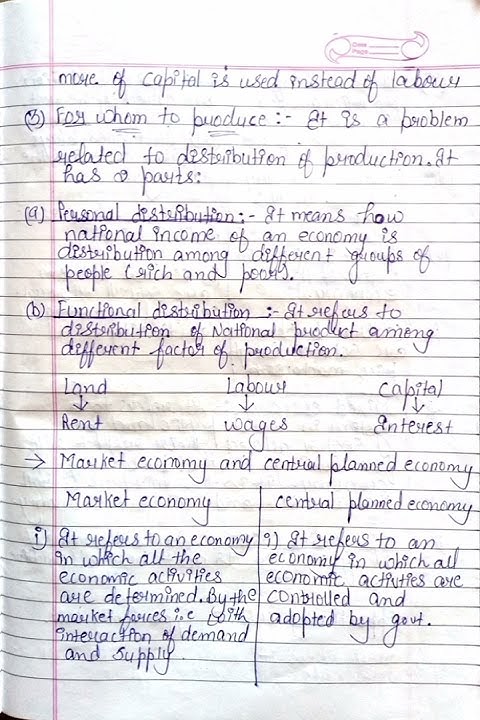 Date
Page
more of capital is used instead of labour
(3) For whom to produce :- It is a problem
related to distribution of production. It
has 2 parts:
(a) Personal distribution :- It means how
national income of an economy is
distribution among different groups of
people (rich and poor).
(b) Functional distribution :- It refers to
distribution of National product among
different factor of production.
Land Labour Capital
↓ ↓ ↓
Rent wages Interest
→ Market economy and central planned economy
Market economy | central planned economy
i) It refers to an economy | i) It refers to an
in which all the | economy in which all
economic activities | economic activties are
are determined. By the | controlled and
market forces i.e with | adopted by govt.
interaction of demand
and supply